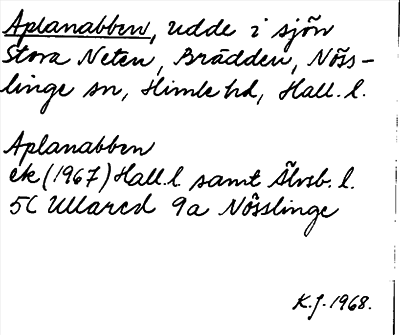 Aplanabben, udde i sjön
Stora Neten, Brädden, Nöss-
linge sn, Himle hd, Hall. l.
Aplanabben
ek (1967) Hall. l. samt Älvsb. l.
5C Ullared 9a Nösslinge
K.J. 1968.